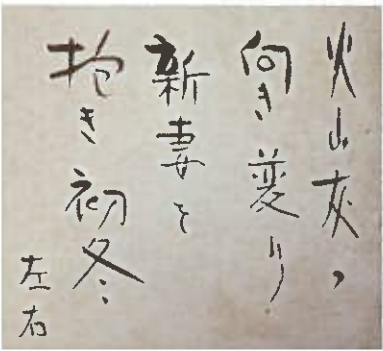 火山灰の
向き変り
新妻を
抱き初冬
左右